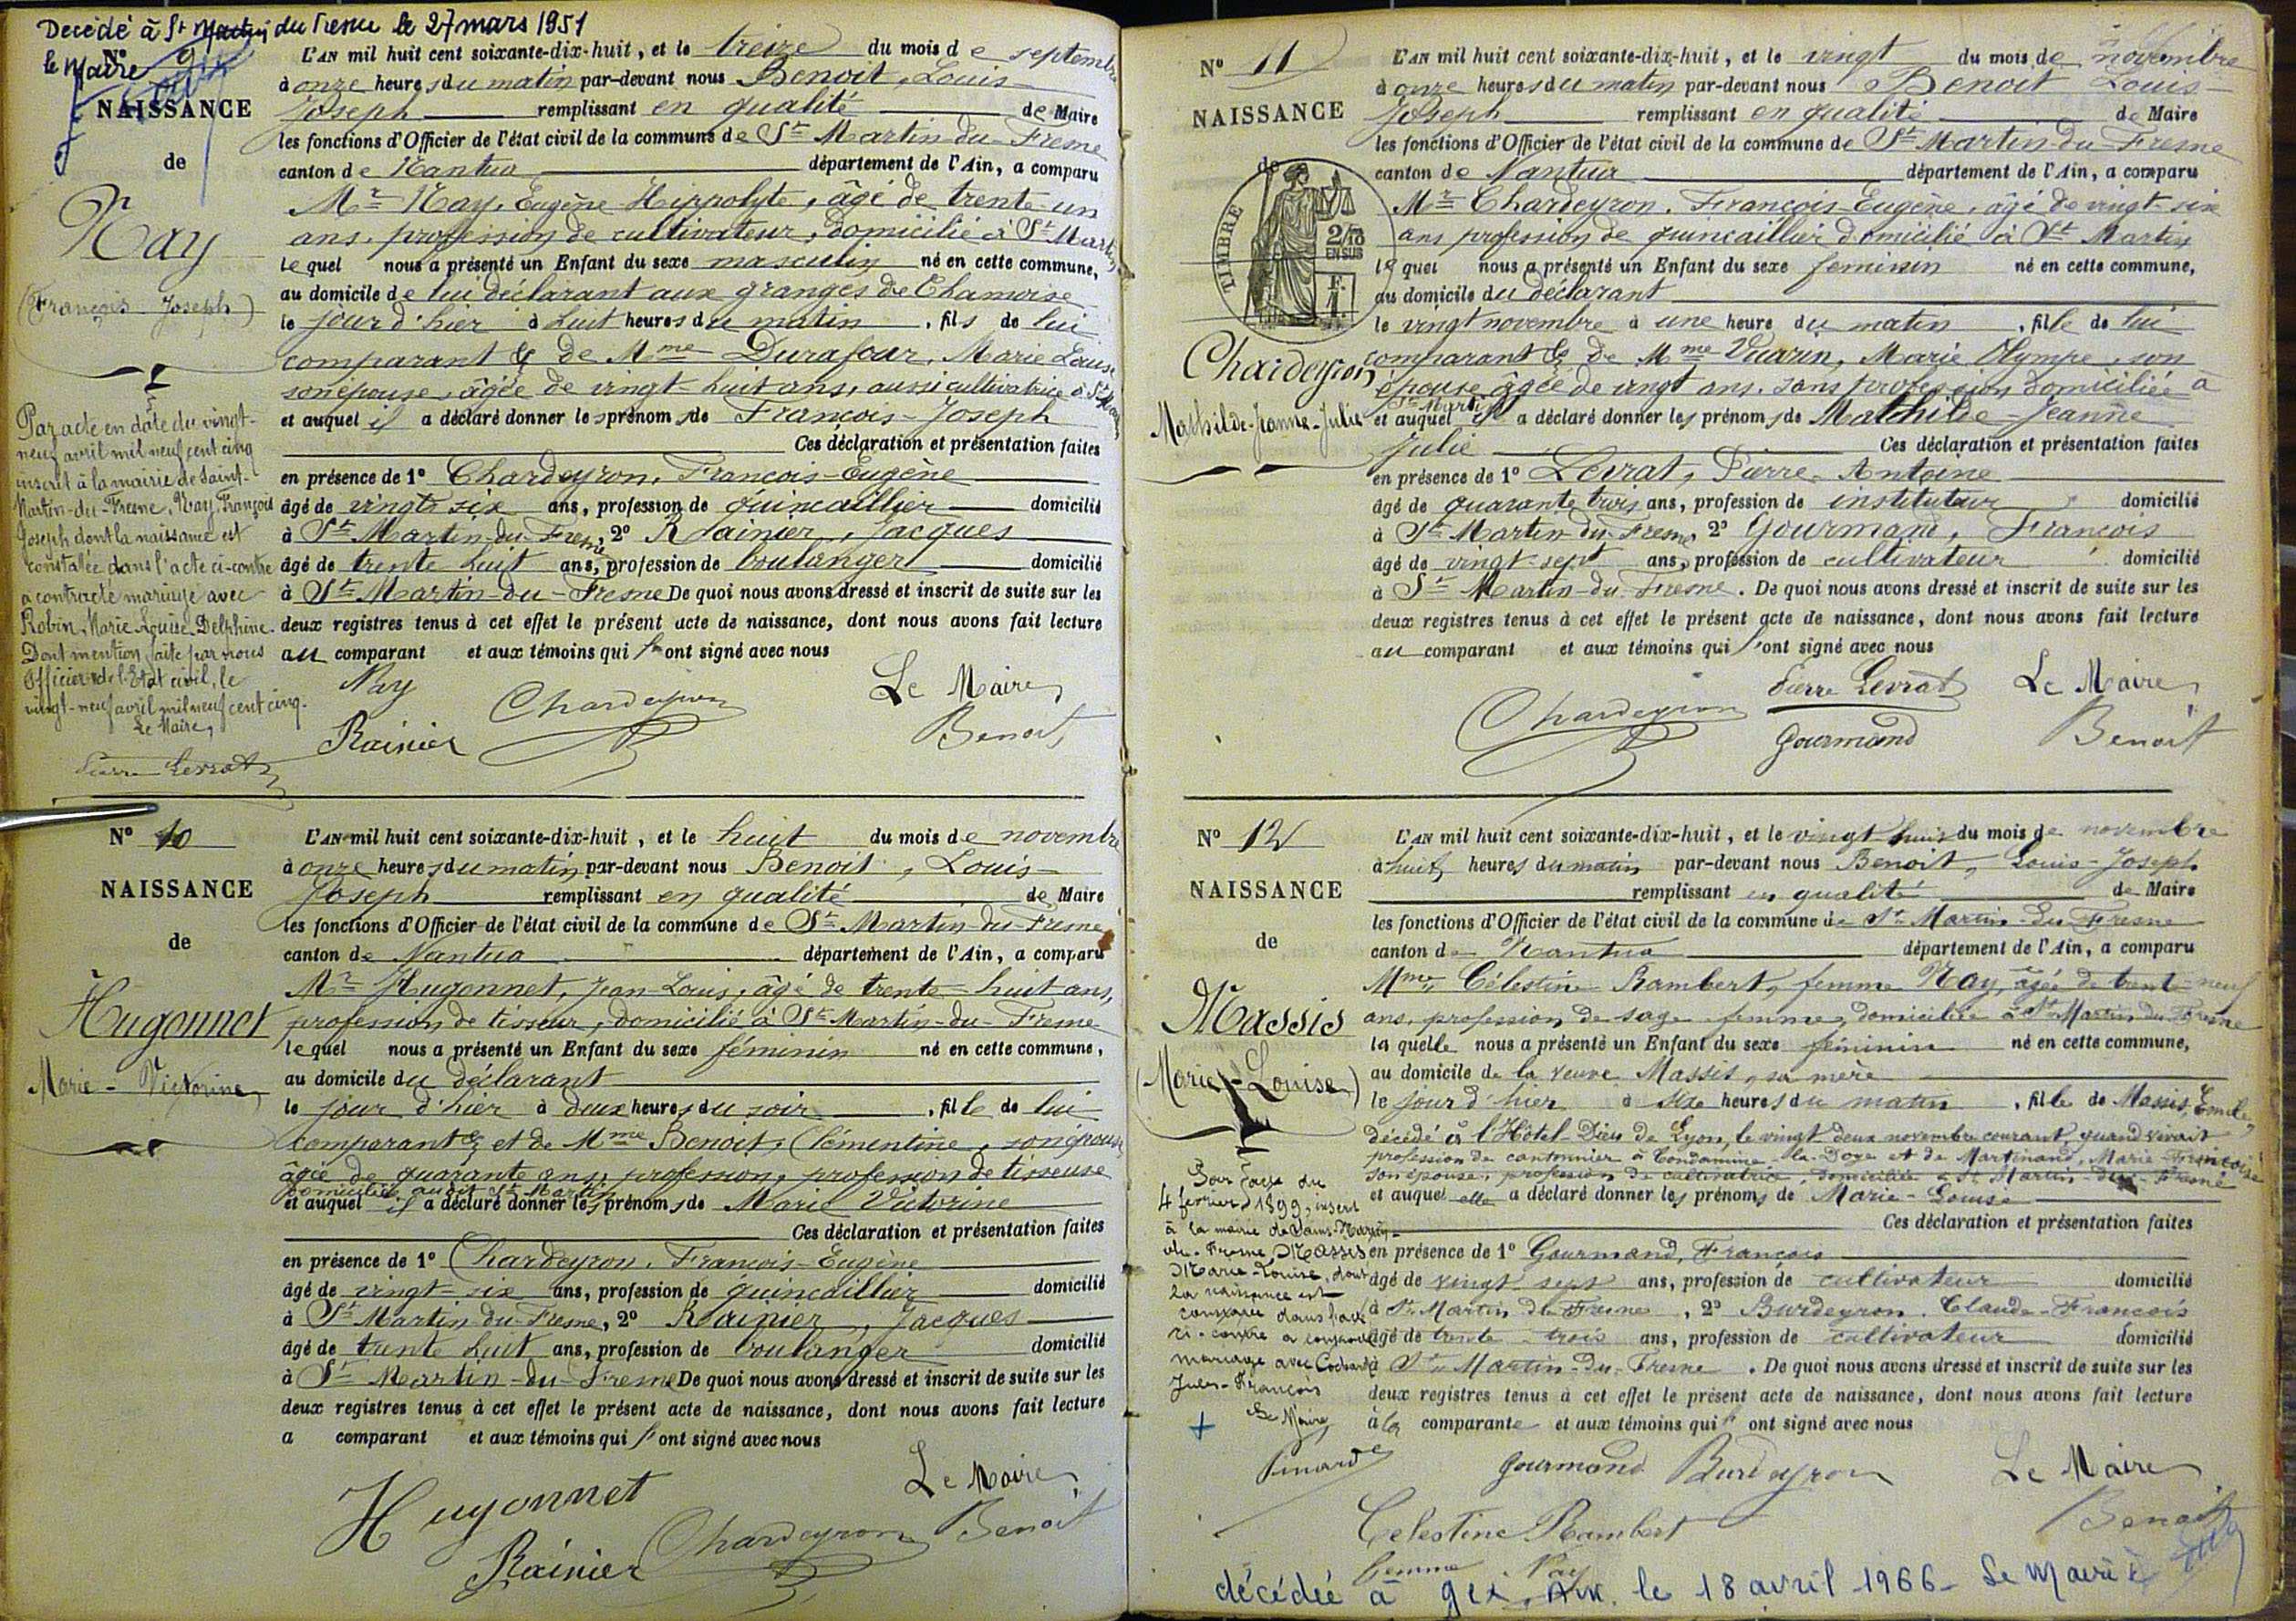 Decédé à St Martin du Fresne le 27 mars 1951
le Maire
N° 9
NAISSANCE
de
Nay
(François Joseph)
L'AN mil huit cent soixante-dix-huit, et le treize du mois de septembre
à onze heures du matin par-devant nous Benoit, Louis-
Joseph remplissant en qualité de Maire
les fonctions d'Officier de l'état civil de la commune de St Martin-du-Fresne
canton de Nantua département de l'Ain, a comparu
Mr Nay, Eugène Hippolyte, âgé de trente-un
ans, profession de cultivateur, domicilié à St Martin
lequel nous a présenté un Enfant du sexe masculin né en cette commune,
au domicile de lui déclarant aux granges de Chamoise
le jour d'hier à huit heures du matin, fils de lui
comparant & de Mme Durafour, Marie Louise
son épouse, âgée de vingt-huit ans, aussi cultivatrice à St Martin
et auquel il a déclaré donner les prénoms de François-Joseph
Ces déclaration et présentation faites
en présence de 1° Chardeyron, François-Eugène
âgé de vingt six ans, profession de quincaillier domicilié
à St Martin-du-Fresne, 2° Rainier, Jacques
âgé de trente huit ans, profession de boulanger domicilié
à St Martin-du-Fresne De quoi nous avons dressé et inscrit de suite sur les
deux registres tenus à cet effet le présent acte de naissance, dont nous avons fait lecture
au comparant et aux témoins qui l'ont signé avec nous
Nay
Chardeyron
Le Maire
Rainier
Benoit
Par acte en date du vingt-
neuf avril mil neuf cent cinq
inscrit à la mairie de Saint-
Martin-du-Fresne, Nay, François
Joseph dont la naissance est
constatée dans l'acte ci-contre
a contracté mariage avec
Robin, Marie Louise Delphine.
Dont mention faite par nous
Officier de l'Etat civil, le
vingt-neuf avril mil neuf cent cinq.
Le Maire,
Pierre Levrat
N° 10
NAISSANCE
de
Hugonnet
Marie-Victorine
L'AN mil huit cent soixante-dix-huit, et le huit du mois de novembre
à onze heures du matin par-devant nous Benoit, Louis-
Joseph remplissant en qualité de Maire
les fonctions d'Officier de l'état civil de la commune de St Martin-du-Fresne
canton de Nantua département de l'Ain, a comparu
Mr Hugonnet, Jean-Louis, âgé de trente-huit ans,
profession de tisseur, domicilié à St Martin-du-Fresne
lequel nous a présenté un Enfant du sexe féminin né en cette commune,
au domicile du déclarant
le jour d'hier à deux heures du soir, fille de lui
comparant & et de Mme Benoit, Clémentine, son épouse,
âgée de quarante ans, profession, profession de tisseuse
domiciliée audit St Martin
et auquel il a déclaré donner les prénoms de Marie Victorine
Ces déclaration et présentation faites
en présence de 1° Chardeyron, François-Eugène
âgé de vingt-six ans, profession de quincaillier domicilié
à St Martin-du-Fresne, 2° Rainier, Jacques
âgé de trente huit ans, profession de boulanger domicilié
à St Martin-du-Fresne De quoi nous avons dressé et inscrit de suite sur les
deux registres tenus à cet effet le présent acte de naissance, dont nous avons fait lecture
a comparant et aux témoins qui l'ont signé avec nous
Le Maire
Hugonnet
Chardeyron
Benoit
Rainier
N° 11
NAISSANCE
de
TIMBRE
2/10
EN SUS
F.
1.
Chardeyron
Mathilde-Jeanne-Julie
L'AN mil huit cent soixante-dix-huit, et le vingt du mois de novembre
à onze heures du matin par-devant nous Benoit Louis-
Joseph remplissant en qualité de Maire
les fonctions d'Officier de l'état civil de la commune de St Martin-du-Fresne
canton de Nantua département de l'Ain, a comparu
Mr Chardeyron, François-Eugène, âgé de vingt-six
ans profession de quincaillier domicilié à St Martin
lequel nous a présenté un Enfant du sexe feminin né en cette commune,
au domicile du déclarant
le vingt novembre à une heure du matin, fille de lui
comparant & de Mme Vuarin, Marie Olympe, son
épouse âgée de vingt ans, sans profession domiciliée à
St Martin
et auquel il a déclaré donner les prénoms de Mathilde-Jeanne
Julie Ces déclaration et présentation faites
en présence de 1° Levrat, Pierre-Antoine
âgé de quarante trois ans, profession de instituteur domicilié
à St Martin-du-Fresne, 2° Gourmand, François
âgé de vingt-sept ans, profession de cultivateur domicilié
à St Martin-du-Fresne. De quoi nous avons dressé et inscrit de suite sur les
deux registres tenus à cet effet le présent acte de naissance, dont nous avons fait lecture
au comparant et aux témoins qui l'ont signé avec nous
Pierre Levrat
Le Maire
Chardeyron
Gourmand
Benoit
N° 12
NAISSANCE
de
Massis
(Marie-Louise)
L'AN mil huit cent soixante-dix-huit, et le vingt huit du mois de novembre
à huit heures du matin par-devant nous Benoit, Louis-Joseph
remplissant en qualité de Maire
les fonctions d'Officier de l'état civil de la commune de St Martin-du-Fresne
canton de Nantua département de l'Ain, a comparu
Mme Célestine Rambert, femme Nay, âgée de trente-neuf
ans, profession de sage-femme, domiciliée à St Martin du Fresne
laquelle nous a présenté un Enfant du sexe féminin né en cette commune,
au domicile de la veuve Massis, sa mère
le jour d'hier à six heures du matin, fille de Massis, Emile,
décédé à l'Hôtel-Dieu de Lyon, le vingt deux novembre courant, quand vivait
profession de cantonnier à Condamine-la-Doye et de Martinand, Marie-Françoise
son épouse, profession de cultivatrice, domiciliée à St Martin-du-Fresne
et auquel elle a déclaré donner les prénoms de Marie-Louise
Ces déclaration et présentation faites
en présence de 1° Gourmand, François
âgé de vingt sept ans, profession de cultivateur domicilié
à St Martin du Fresne, 2° Burdeyron, Claude-François
âgé de trente-trois ans, profession de cultivateur domicilié
à St Martin-du-Fresne. De quoi nous avons dressé et inscrit de suite sur les
deux registres tenus à cet effet le présent acte de naissance, dont nous avons fait lecture
à la comparante et aux témoins qui l'ont signé avec nous
Gourmand
Burdeyron
Le Maire
Celestine Rambert
Benoit
femme Nay
Par acte du
4 février 1899, inscrit
à la mairie de Saint-Martin-
du-Fresne Massis
Marie-Louise, dont
la naissance est
constatée dans l'acte
ci-contre a contracté
mariage avec
Jules-François
Le Maire
Pinard
décédée à Gex, Ain, le 18 avril 1966 - Le Maire